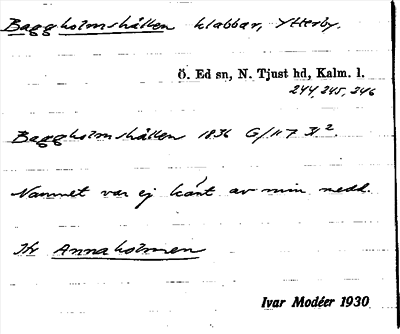 Baggholmshällen klabbar, Ytterby.
Ö. Ed sn, N. Tjust hd, Kalm. l.
244, 245, 246
Baggholmshällen 1836 G/117 31².
Namnet var ej känt av min medd.
Jfr Annaholmen
Ivar Modéer 1930